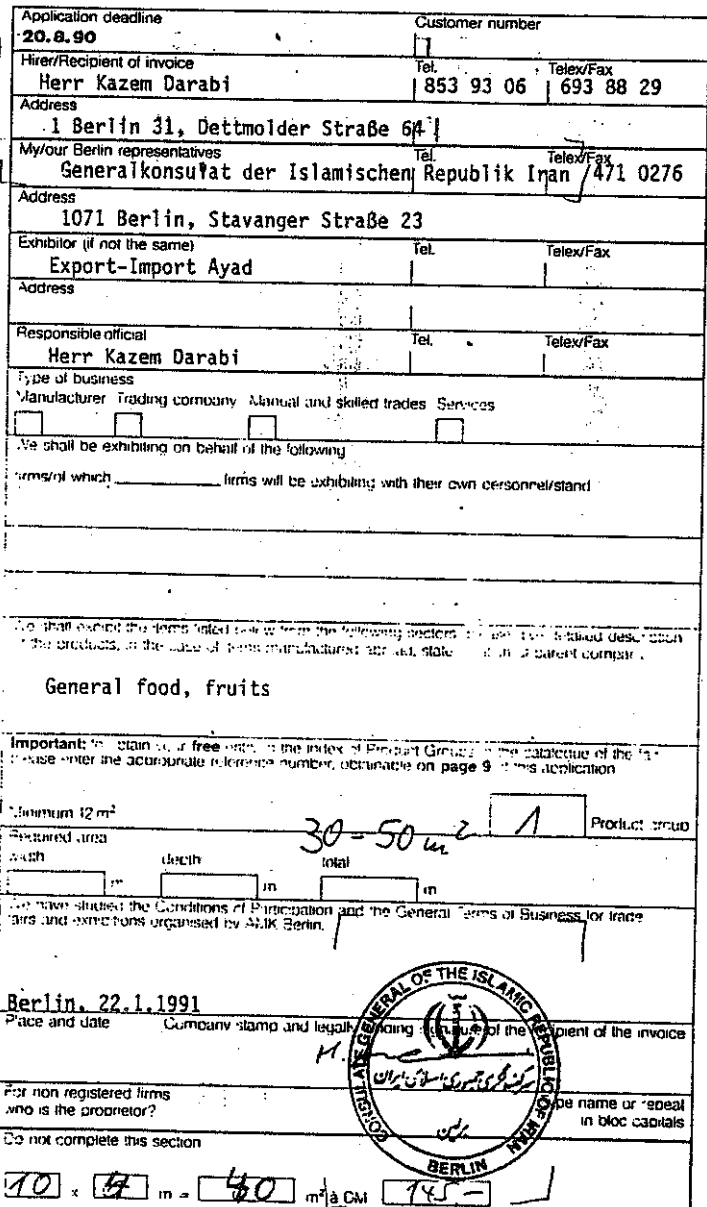 Application deadline Customer number
20.8.90
Hirer/Recipient of invoice Tel. Telex/Fax
Herr Kazem Darabi 853 93 06 693 88 29
Address
1 Berlin 31, Dettmolder Straße 64
My/our Berlin representatives Tel. Telex/Fax
Generalkonsulat der Islamischen Republik Iran 471 0276
Address
1071 Berlin, Stavanger Straße 23
Exhibitor (if not the same) Tel. Telex/Fax
Export-Import Ayad
Address
Responsible official Tel. Telex/Fax
Herr Kazem Darabi
Type of business
Manufacturer Trading company Manual and skilled trades Services
We shall be exhibiting on behalf of the following
firms/of which firms will be exhibiting with their own personnel/stand
We shall exhibit the items listed below from the following sectors detailed description
of the products, in the case of items manufactured abroad, state parent company
General food, fruits
Important: to obtain your free entry in the index of Product Groups in the catalogue of the fair
please enter the appropriate reference number, obtainable on page 9 of this application
Minimum 12 m²
30-50 m² 1 Product group
Required area
width depth total
m m m
We have studied the Conditions of Participation and the General Terms of Business for trade
fairs and exhibitions organised by AMK Berlin.
Berlin, 22.1.1991
Place and date Company stamp and legally binding signature of the recipient of the invoice
CONSULATE GENERAL OF THE ISLAMIC REPUBLIC OF IRAN
سرکنسولگری جمهوری اسلامی ایران
برلین
BERLIN
For non registered firms
who is the proprietor? type name or repeat
in bloc capitals
Do not complete this section
10 x 4 m = 40 m² à DM 145 -